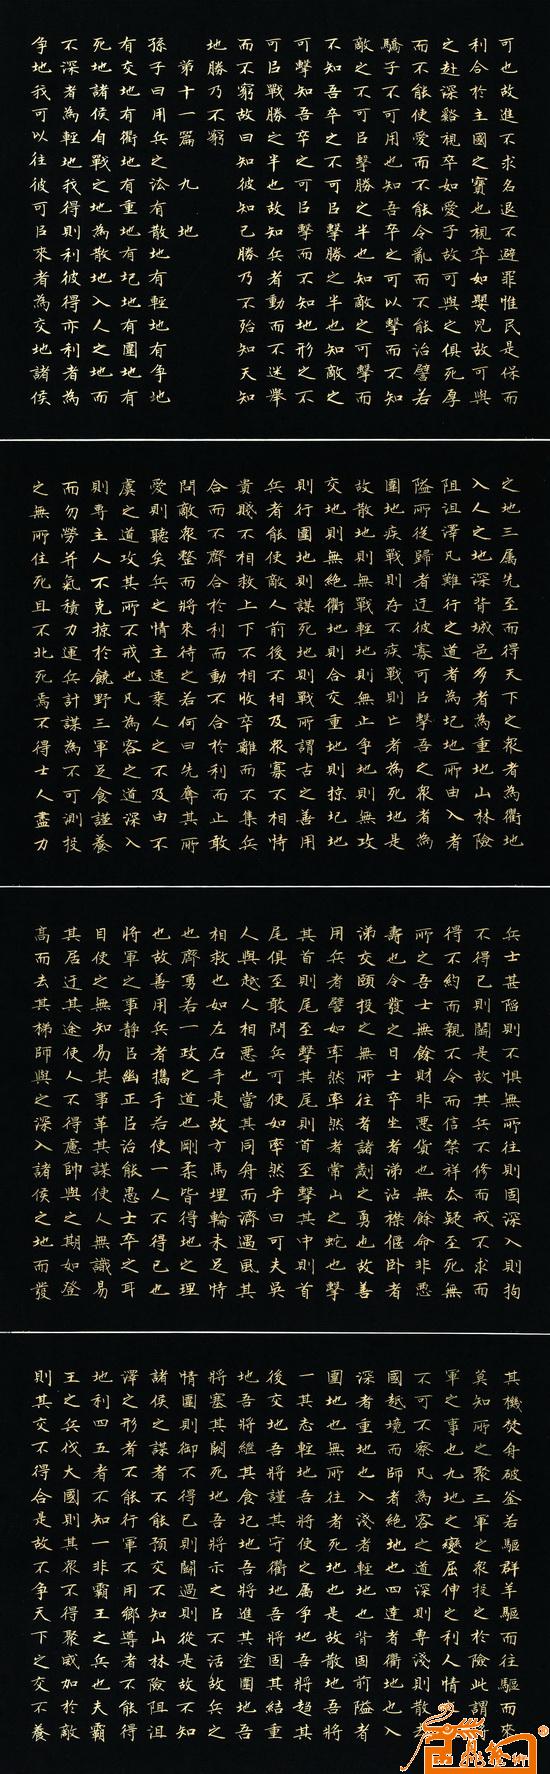 可也故進不求名退不避罪惟民是保而
利合於主國之寶也視卒如嬰兒故可與
之赴深谿視卒如愛子故可與之俱死厚
而不能使愛而不能令亂而不能治譬若
驕子不可用也知吾卒之可以擊而不知
敵之不可㠯擊勝之半也知敵之可擊而
不知吾卒之不可㠯擊勝之半也知敵之
可擊知吾卒之可㠯擊而不知地形之不
可㠯戰勝之半也故知兵者動而不迷舉
而不窮故曰知彼知己勝乃不殆知天知
地勝乃不窮
第十一篇 九 地
孫子曰用兵之法有散地有輕地有争地
有交地有衢地有重地有圮地有圍地有
死地諸侯自戰之地為散地入人之地而
不深者為輕地我得則利彼得亦利者為
争地我可以往彼可㠯來者為交地諸侯
之地三属先至而得天下之衆者為衢地
入人之地深背城邑多者為重地山林險
阻沮澤凡難行之道者為圮地所由入者
隘所從歸者迂彼寡可㠯擊吾之衆者為
圍地疾戰則存不疾戰則亡者為死地是
故散地則無戰輕地則無止争地則無攻
交地則無絶衢地則合交重地則掠圮地
則行圍地則謀死地則戰所謂古之善用
兵者能使敵人前後不相及衆寡不相恃
貴賤不相救上下不相收卒離而不集兵
合而不齊合於利而動不合於利而止敢
問敵衆整而將來待之若何曰先奪其所
愛則聽矣兵之情主速乘人之不及由不
虞之道攻其所不戒也凡為客之道深入
則專主人不克掠於饒野三軍足食謹養
而勿勞并氣積力運兵計謀為不可測投
之無所往死且不北死焉不得士人盡力
兵士甚陷則不懼無所往則固深入則拘
不得已則鬭是故其兵不修而戒不求而
得不約而親不令而信禁祥去疑至死無
所之吾士無餘財非惡貨也無餘命非惡
壽也令發之日士卒坐者涕沾襟偃卧者
涕交頤投之無所往者諸劌之勇也故善
用兵者譬如率然率然者常山之蛇也擊
其首則尾至擊其尾則首至擊其中則首
尾俱至敢問兵可使如率然乎曰可夫吳
人與越人相惡也當其同舟而濟遇風其
相救也如左右手是故方馬埋輪未足恃
也齊勇若一政之道也剛柔皆得地之理
也故善用兵者攜手若使一人不得已也
將軍之事静㠯幽正㠯治能愚士卒之耳
目使之無知易其事革其謀使人無識易
其居迂其途使人不得慮帥與之期如登
高而去其梯師與之深入諸侯之地而發
其機焚身破釜若驅群羊驅而往驅而來
莫知所之聚三軍之衆投之於險此謂
軍之事也九地之變屈伸之利人情
不可不察凡為客之道深則專淺則散
國越境而師者絶地也四達者衢地也入
深者重地也入淺者輕地也背固前隘者
圍地也無所往者死地也是故散地吾將
一其志輕地吾將使之属争地吾將趨其
後交地吾將謹其守衢地吾將固其結重
地吾將繼其食圮地吾將進其塗圍地吾
將塞其闕死地吾將示之㠯不活故兵之
情圍則御不得已則鬭過則從是故不知
諸侯之謀者不能預交不知山林險阻沮
澤之形者不能行軍不用鄉導者不能得
地利四五者不知一非霸王之兵也夫霸
王之兵伐大國則其衆不得聚威加於敵
則其交不得合是故不争天下之交不養